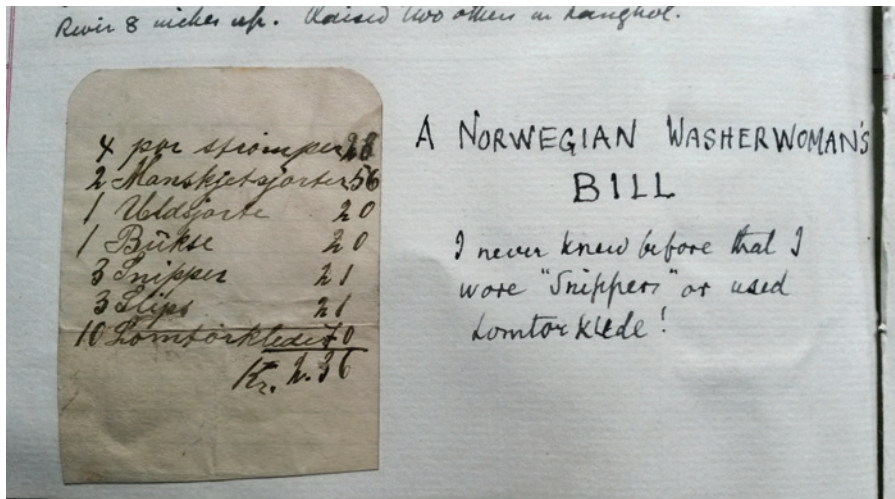 River 8 inches up. Raised two others in Langhol.
4 por strømper 28
2 Manskjetsjorter 56
1 Uldsjorte 20
1 Bukse 20
3 Snipper 21
3 Slips 21
10 Lomtørkleder 70
Kr. 2.36
A NORWEGIAN WASHERWOMAN'S
BILL
I never knew before that I
wore "Snippers" or used
Lomtorklede!